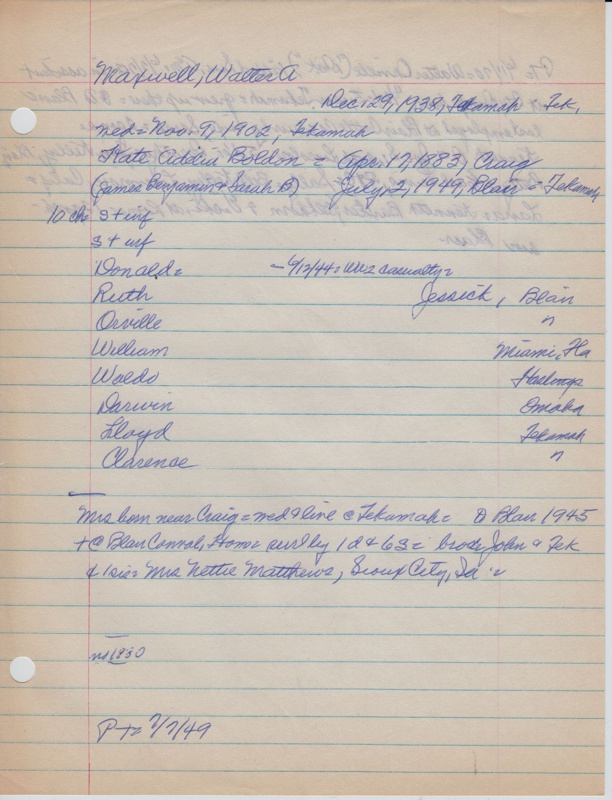 Maxwell, Walter A
Dec. 29, 1938, Tekamah = Tek,
med = Nov. 9, 1902 Tekamah
Kate Addia Boldon = Apr. 17, 1883, Craig
(James Benjamin & Sarah B) July, 2, 1949, Blair = Tekamah
10 ch: s + inf
s + inf
Donald = - 6/12/44 = WW2 casualty =
Ruth Jessick, Blair
Orville "
William Miami, Fla
Waldo Hastings
Darwin Omaha
Lloyd Tekamah
Clarence "
Mrs born near Craig = med & live @ Tekamah = to Blair 1945
+ @ Blair Home = surv by 1 d & 6 s = bro = John @ Tek
& 1 sis = Mrs Nettie Matthews, Sioux City, Ia =
1830
PT = 7/7/49